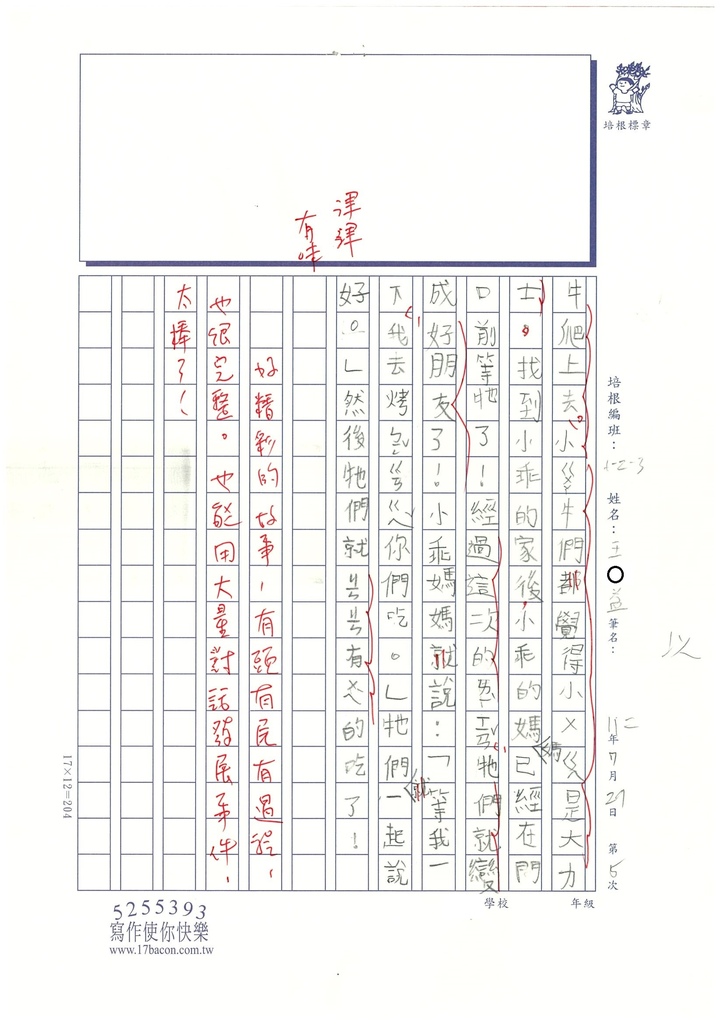 牛爬上去，小ㄍㄨ牛們都覺得小ㄨㄍㄨㄟ是大力
士，找到小乖的家後，小乖的媽媽已經在門
口前等牠了！經過這次的ㄎㄠˇㄧㄢˋ，牠們就變
成好朋友了！小乖媽媽就說：「等我一
下，我去烤ㄅㄠㄍㄨㄟ你們吃。」牠們就一起說
好。」然後牠們就ㄐㄐ有ㄨㄟˋ的吃了！
津津
有味
好精彩的故事，有頭有尾有過程，
也很完整。也能用大量對話發展事件，
太棒了！
培根標章
培根編班：1-2-3
姓名：王○益
筆名：
112年7月29日 第5次
以
學校
年級
17×12=204
5255393
寫作使你快樂
www.17bacon.com.tw